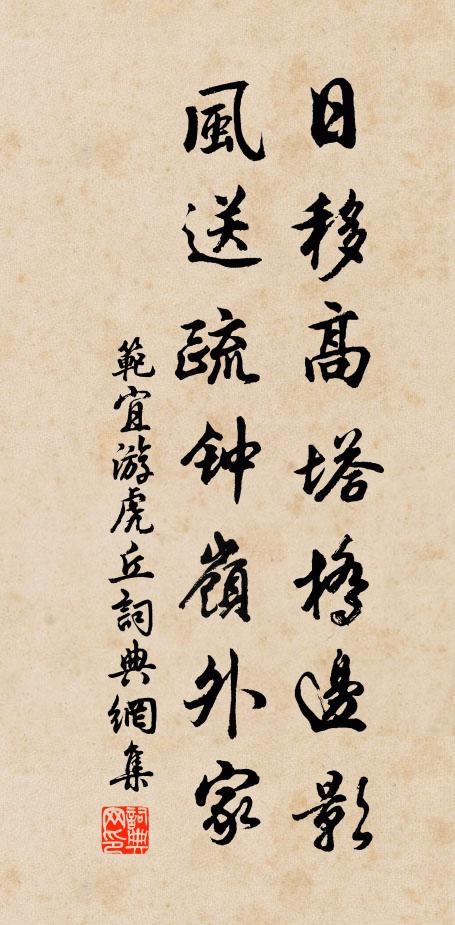 日移高塔橋邊影
風送疏钟嶺外家
範宜游虎丘詞典網集
詞典網印